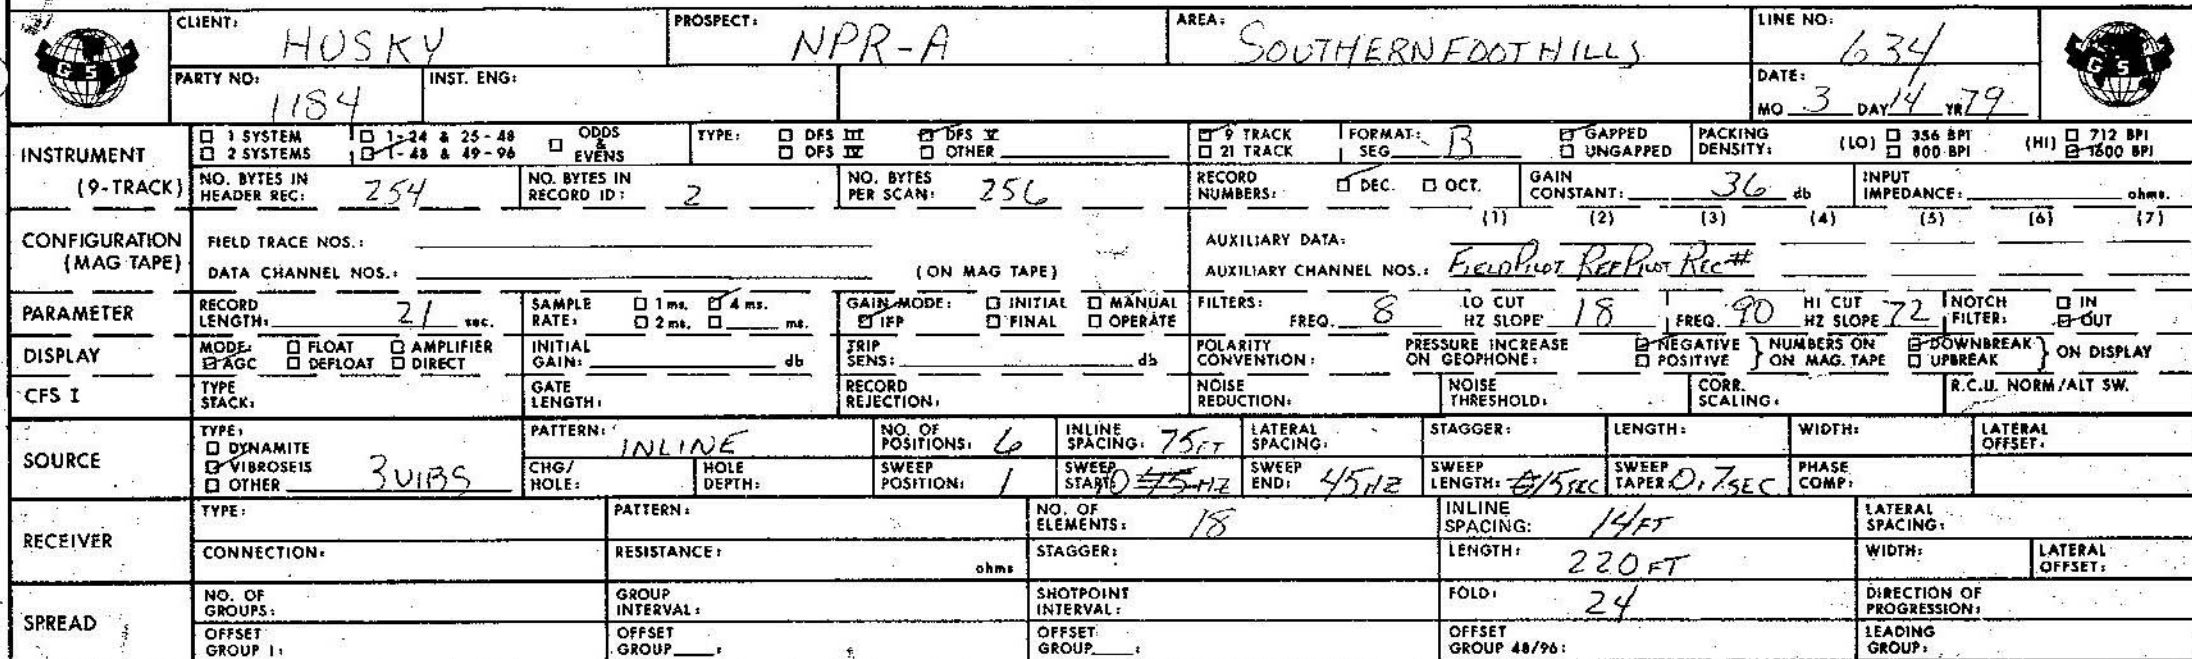 CLIENT: HUSKY PROSPECT: NPR-A AREA: SOUTHERN FOOTHILLS LINE NO: 634
GSI GSI
PARTY NO: 1184 INST. ENG: DATE:
MO 3 DAY 14 YR 79
INSTRUMENT (9-TRACK)
1 SYSTEM 1-24 & 25-48 ODDS & EVENS TYPE: DFS III DFS V 9 TRACK FORMAT: SEG B GAPPED PACKING DENSITY: (LO) 356 BPI (HI) 712 BPI
2 SYSTEMS 1-48 & 49-96 DFS IV OTHER 21 TRACK UNGAPPED 800 BPI 1600 BPI
NO. BYTES IN HEADER REC: 254 NO. BYTES IN RECORD ID: 2 NO. BYTES PER SCAN: 256 RECORD NUMBERS: DEC. OCT. GAIN CONSTANT: 36 db INPUT IMPEDANCE: ohms.
(1) (2) (3) (4) (5) (6) (7)
CONFIGURATION (MAG TAPE)
FIELD TRACE NOS.: AUXILIARY DATA:
DATA CHANNEL NOS.: (ON MAG TAPE) AUXILIARY CHANNEL NOS.: FIELD PILOT REF PILOT REC#
PARAMETER RECORD LENGTH: 21 sec. SAMPLE RATE: 1 ms. 4 ms. 2 ms. ms. GAIN MODE: INITIAL MANUAL IFP FINAL OPERATE FILTERS: FREQ. 8 LO CUT HZ SLOPE 18 FREQ. 90 HI CUT HZ SLOPE 72 NOTCH FILTER: IN OUT
DISPLAY MODE: FLOAT AMPLIFIER AGC DEFLOAT DIRECT INITIAL GAIN: db TRIP SENS: db POLARITY CONVENTION: PRESSURE INCREASE ON GEOPHONE: NEGATIVE POSITIVE } NUMBERS ON ON MAG. TAPE DOWNBREAK UPBREAK } ON DISPLAY
CFS I TYPE STACK: GATE LENGTH: RECORD REJECTION: NOISE REDUCTION: NOISE THRESHOLD: CORR. SCALING: R.C.U. NORM/ALT SW.
SOURCE TYPE: DYNAMITE VIBROSEIS OTHER 3 VIBS
PATTERN: INLINE NO. OF POSITIONS: 6 INLINE SPACING: 75 FT LATERAL SPACING: STAGGER: LENGTH: WIDTH: LATERAL OFFSET:
CHG/HOLE: HOLE DEPTH: SWEEP POSITION: 1 SWEEP START: 10 HZ SWEEP END: 45 HZ SWEEP LENGTH: 15 SEC SWEEP TAPER 0.7 SEC PHASE COMP:
RECEIVER TYPE: PATTERN: NO. OF ELEMENTS: 18 INLINE SPACING: 14 FT LATERAL SPACING:
CONNECTION: RESISTANCE: ohms STAGGER: LENGTH: 220 FT WIDTH: LATERAL OFFSET:
SPREAD NO. OF GROUPS: GROUP INTERVAL: SHOTPOINT INTERVAL: FOLD: 24 DIRECTION OF PROGRESSION:
OFFSET GROUP 1: OFFSET GROUP : OFFSET GROUP : OFFSET GROUP 48/96: LEADING GROUP: